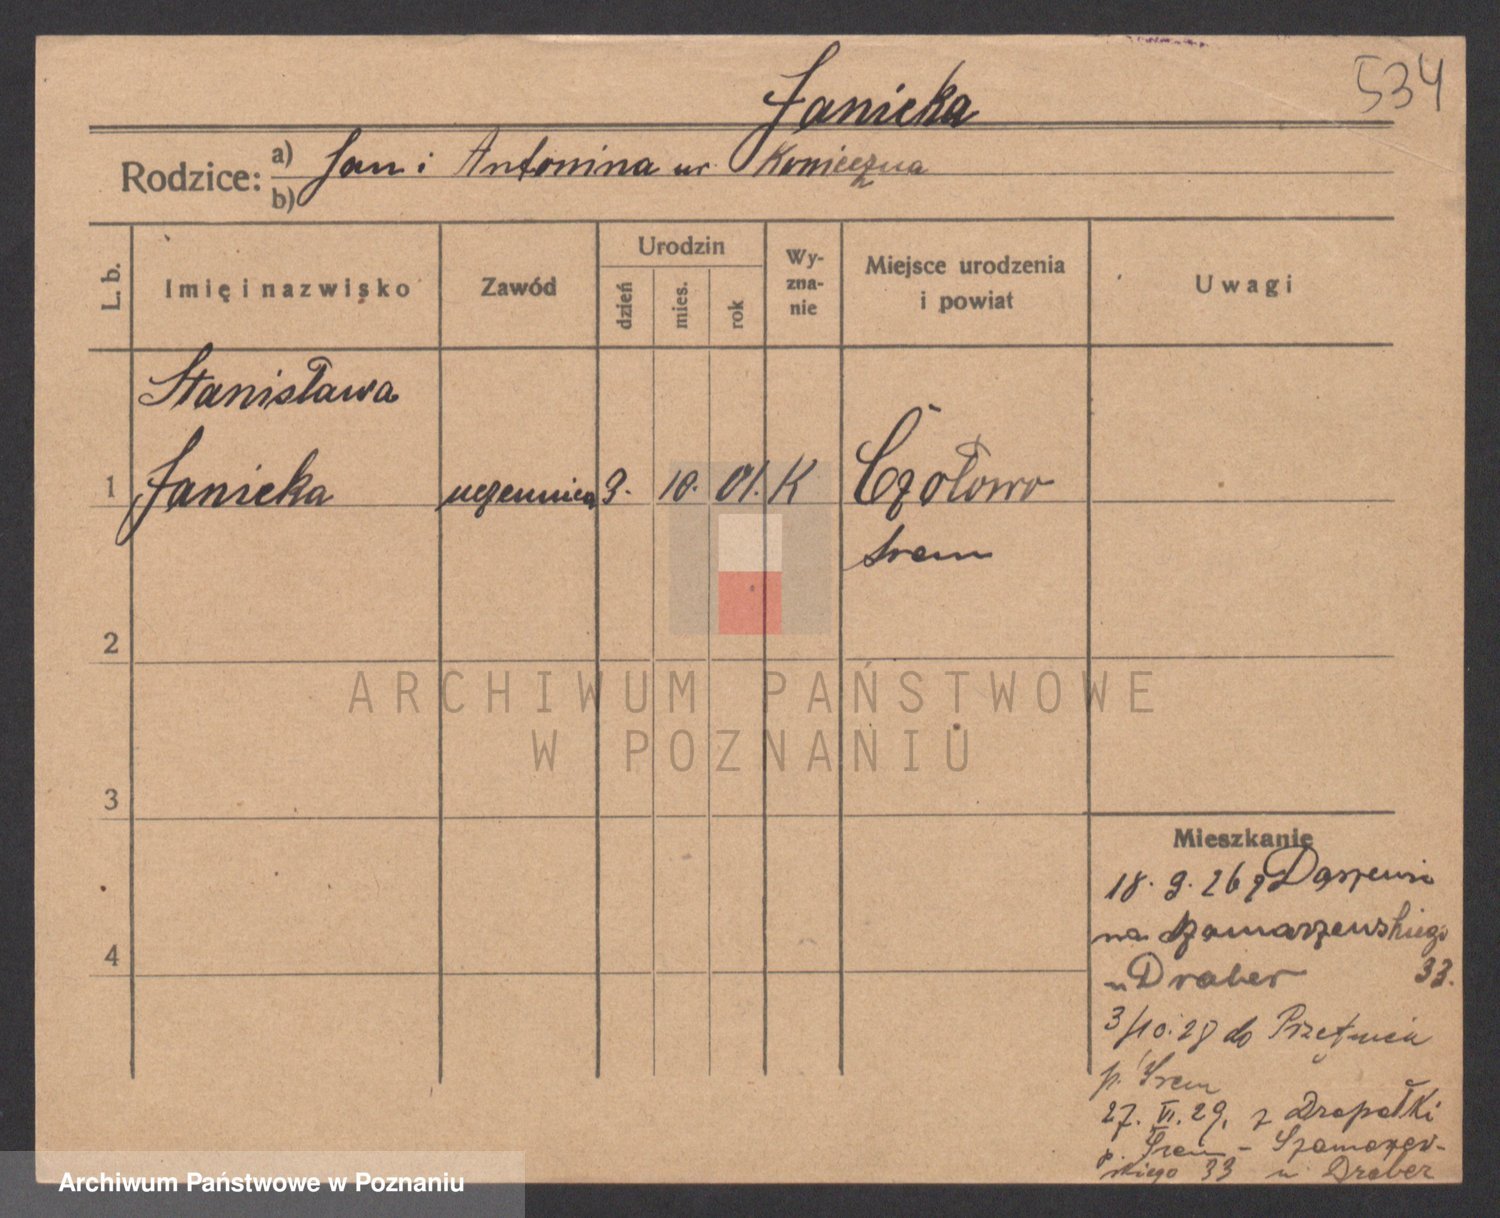 534
Janicka
Rodzice: a) Jan i Antonina ur. Konieczna
b)
L. b.
Imię i nazwisko
Zawód
Urodzin
dzień
mies.
rok
Wy-
zna-
nie
Miejsce urodzenia
i powiat
Uwagi
Stanisława
1 Janicka uczennica 9. 10. 01. K Czołowo
Śrem
2
ARCHIWUM PAŃSTWOWE
W POZNANIU
3
4
Mieszkanie
18. 9. 26 z
na Szamarzewskiego
u Draber 33.
3/10. 28 do
p. Śrem
27. VI. 29. z Drapałki
p. Śrem - Szamarzew-
skiego 33 u Draber
Archiwum Państwowe w Poznaniu